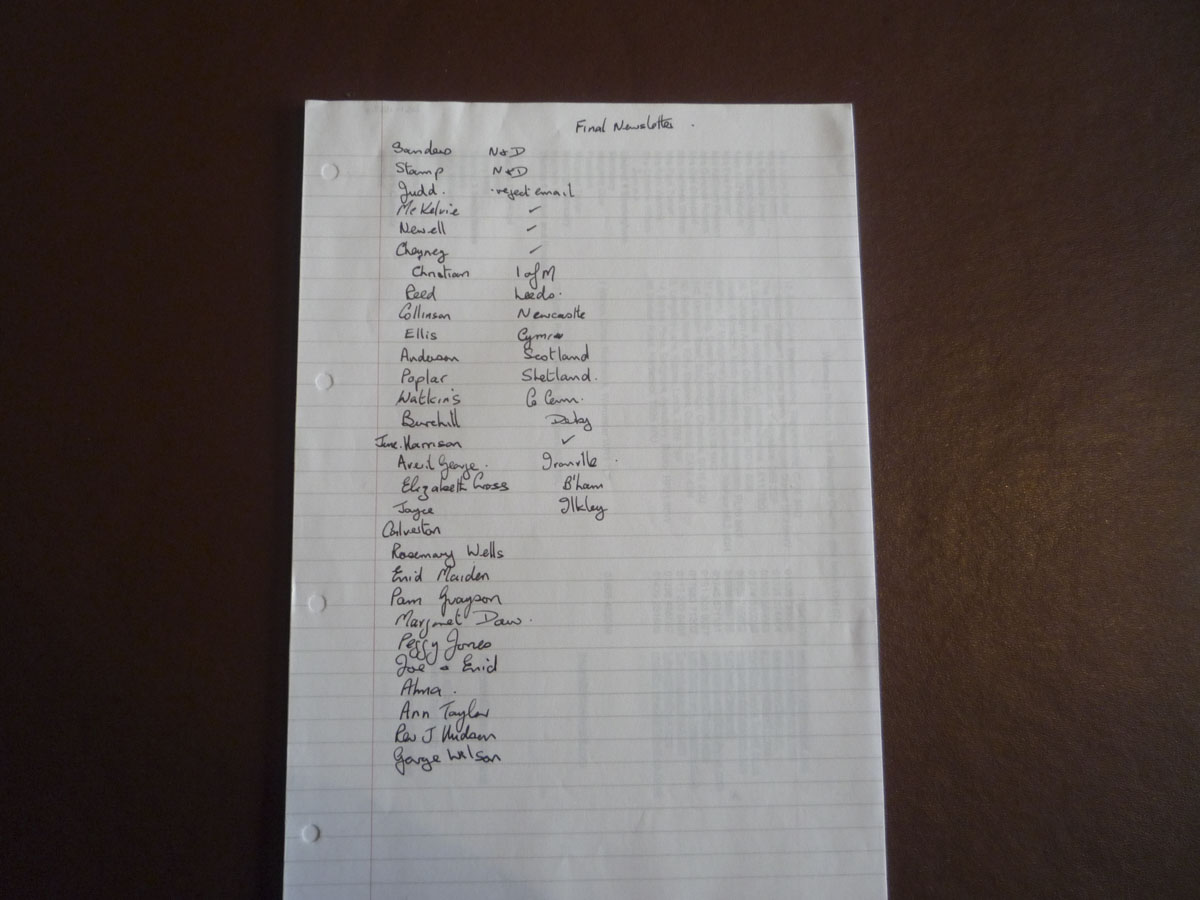 Final Newsletter .
Sanders N&D
Stamp N&D
Judd. reject email
McKelvie ✓
Newell ✓
Cheyney ✓
Christian I of M
Reed Leeds.
Collinson Newcastle
Ellis
Anderson Scotland
Poplar Shetland.
Watkins
Burchill Derby
June Harrison ✓
Averil George.
Elizabeth Cross B'ham
Joyce Ilkley
Calverton
Rosemary Wells
Enid Maiden
Pam Grayson
Margaret Daw.
Peggy Jones
Joe & Enid
Alma.
Ann Taylor
Rev J Hudson
George Wilson